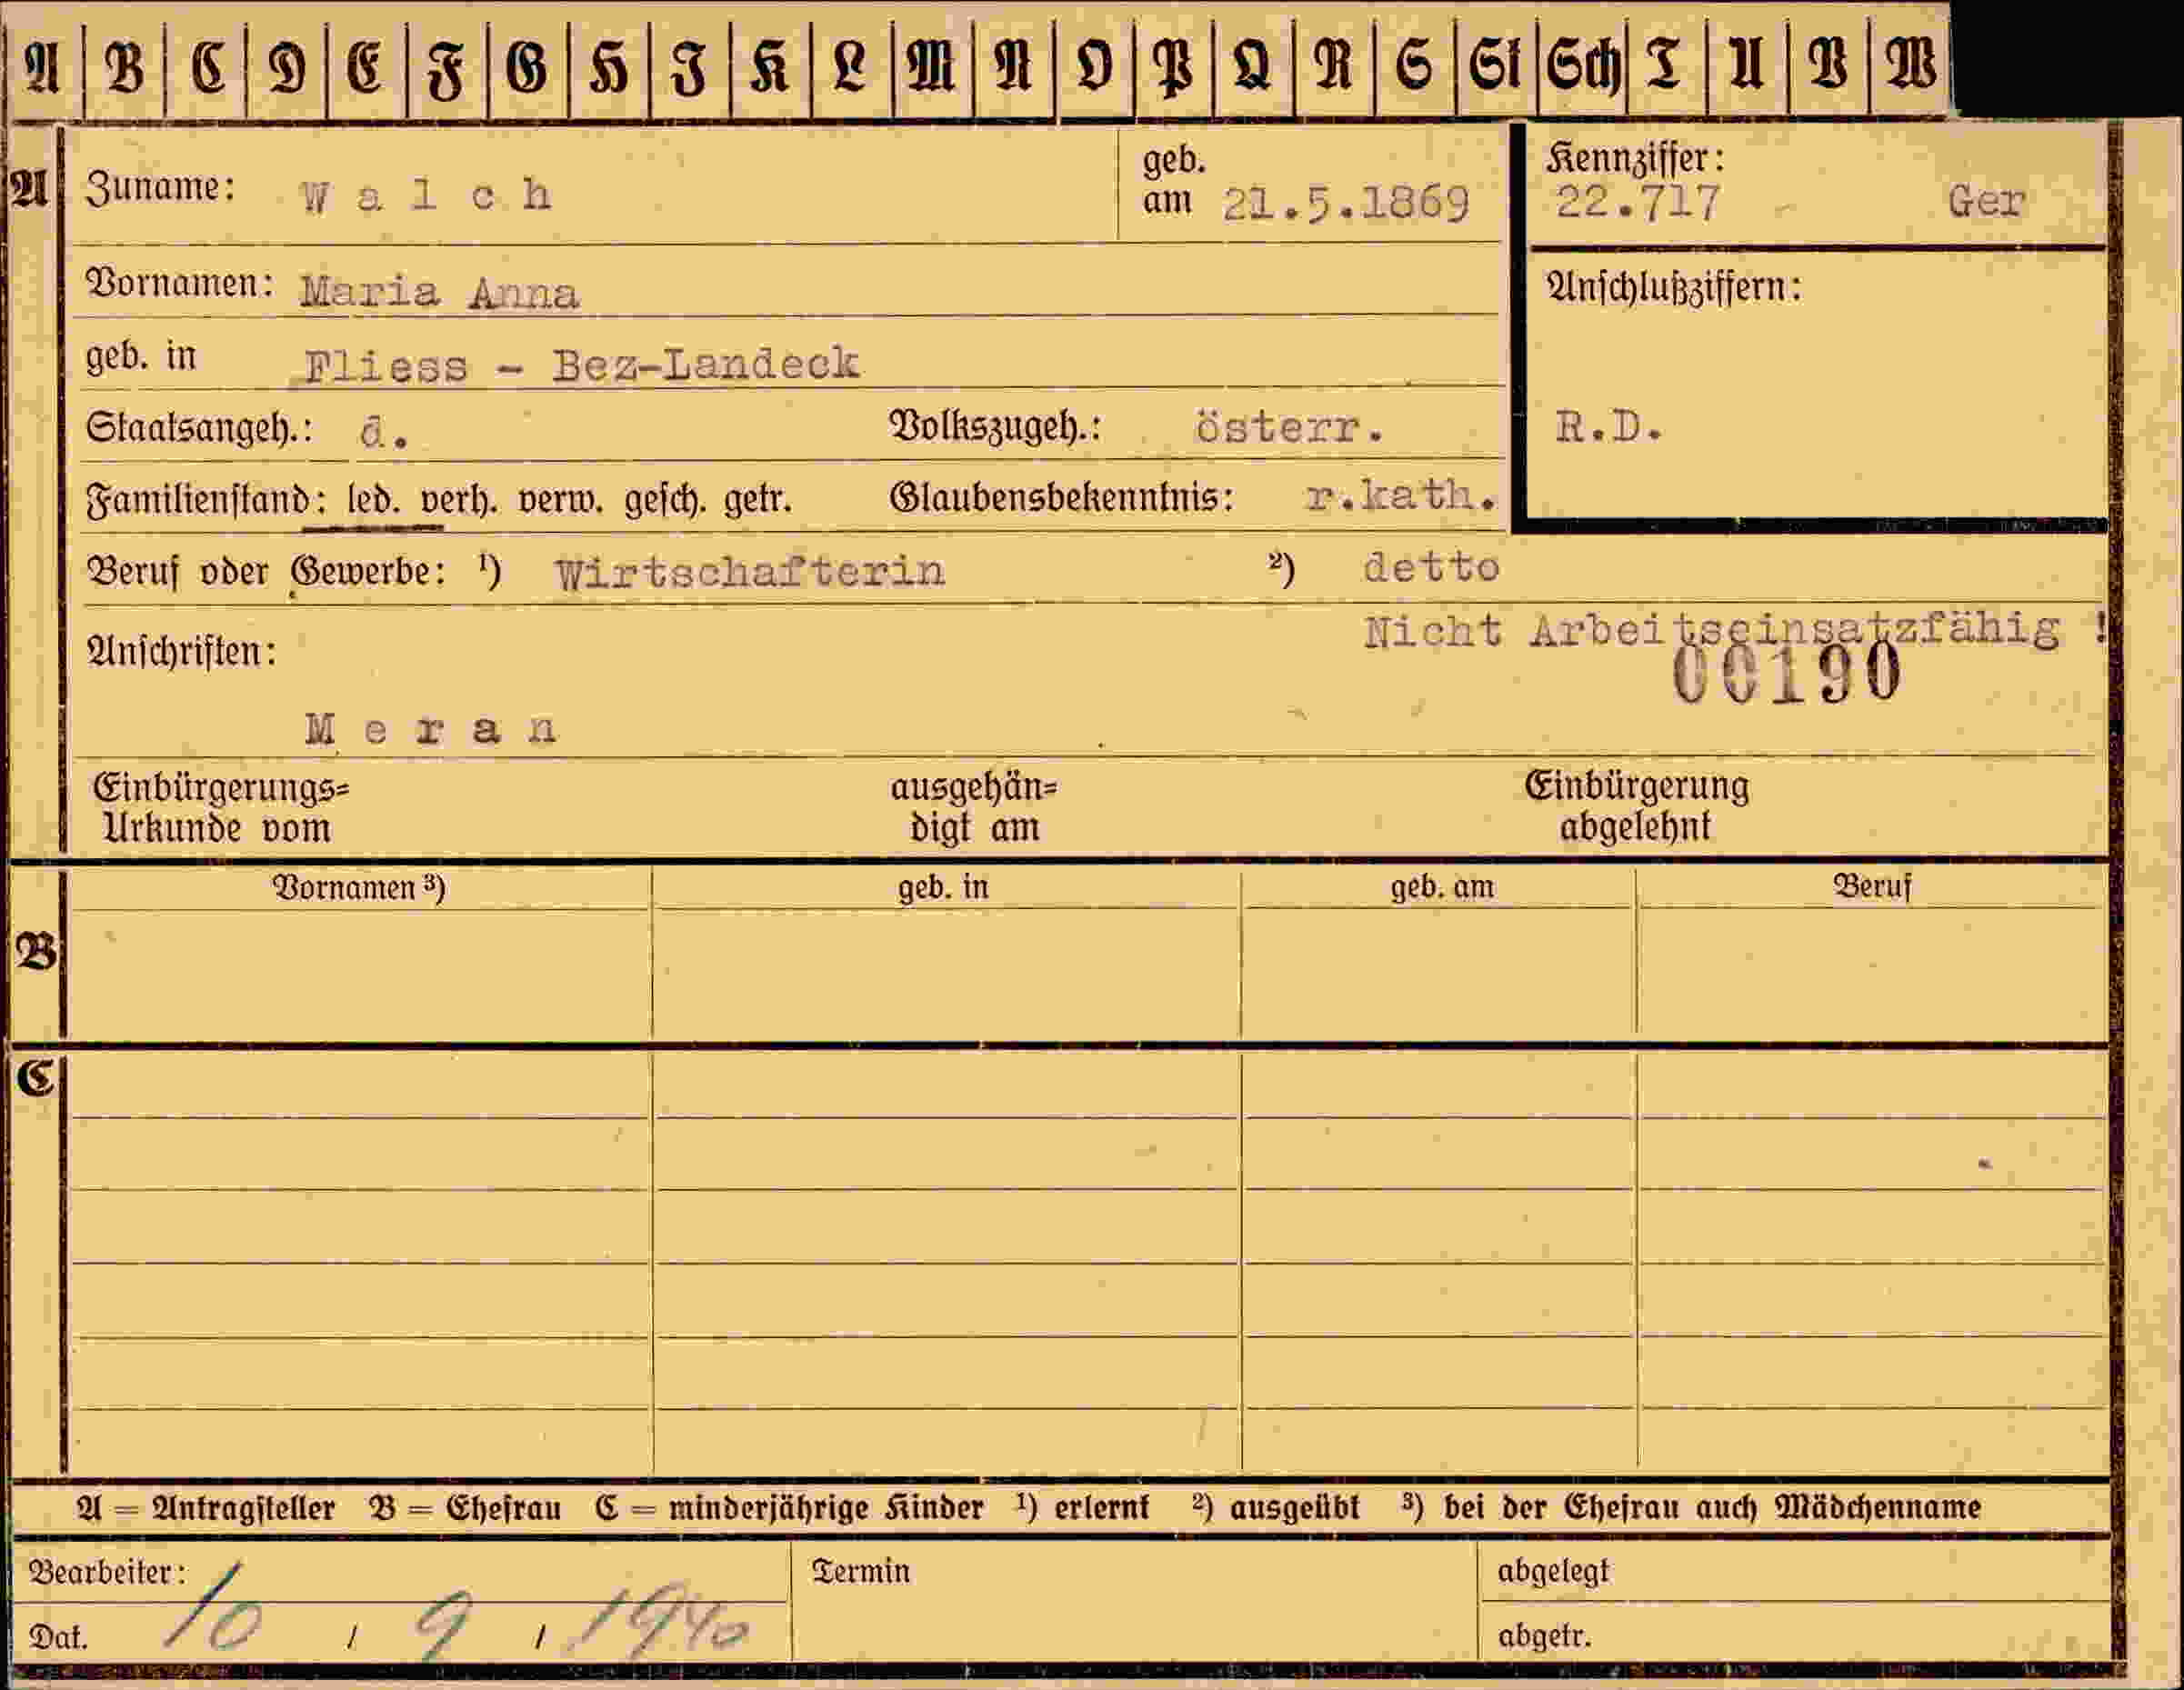 A B C D E F G H I K L M N O P Q R S St Sch T U V W
A Zuname: W a l c h geb. am 21.5.1869 Kennziffer: 22.717 Ger
Vornamen: Maria Anna Anschlußziffern:
geb. in Fliess - Bez-Landeck
Staatsangeh.: d. Volkszugeh.: österr. R.D.
Familienstand: led. verh. verw. gesch. getr. Glaubensbekenntnis: r.kath.
Beruf oder Gewerbe: ¹) Wirtschafterin ²) detto
Nicht Arbeitseinsatzfähig !
Anschriften: 00190
M e r a n
Einbürgerungs= ausgehän= Einbürgerung
Urkunde vom digt am abgelehnt
Vornamen ³) geb. in geb. am Beruf
B
C
A = Antragsteller B = Ehefrau C = minderjährige Kinder ¹) erlernt ²) ausgeübt ³) bei der Ehefrau auch Mädchenname
Bearbeiter: Termin abgelegt
Dat. 10 / 9 / 1940 abgetr.